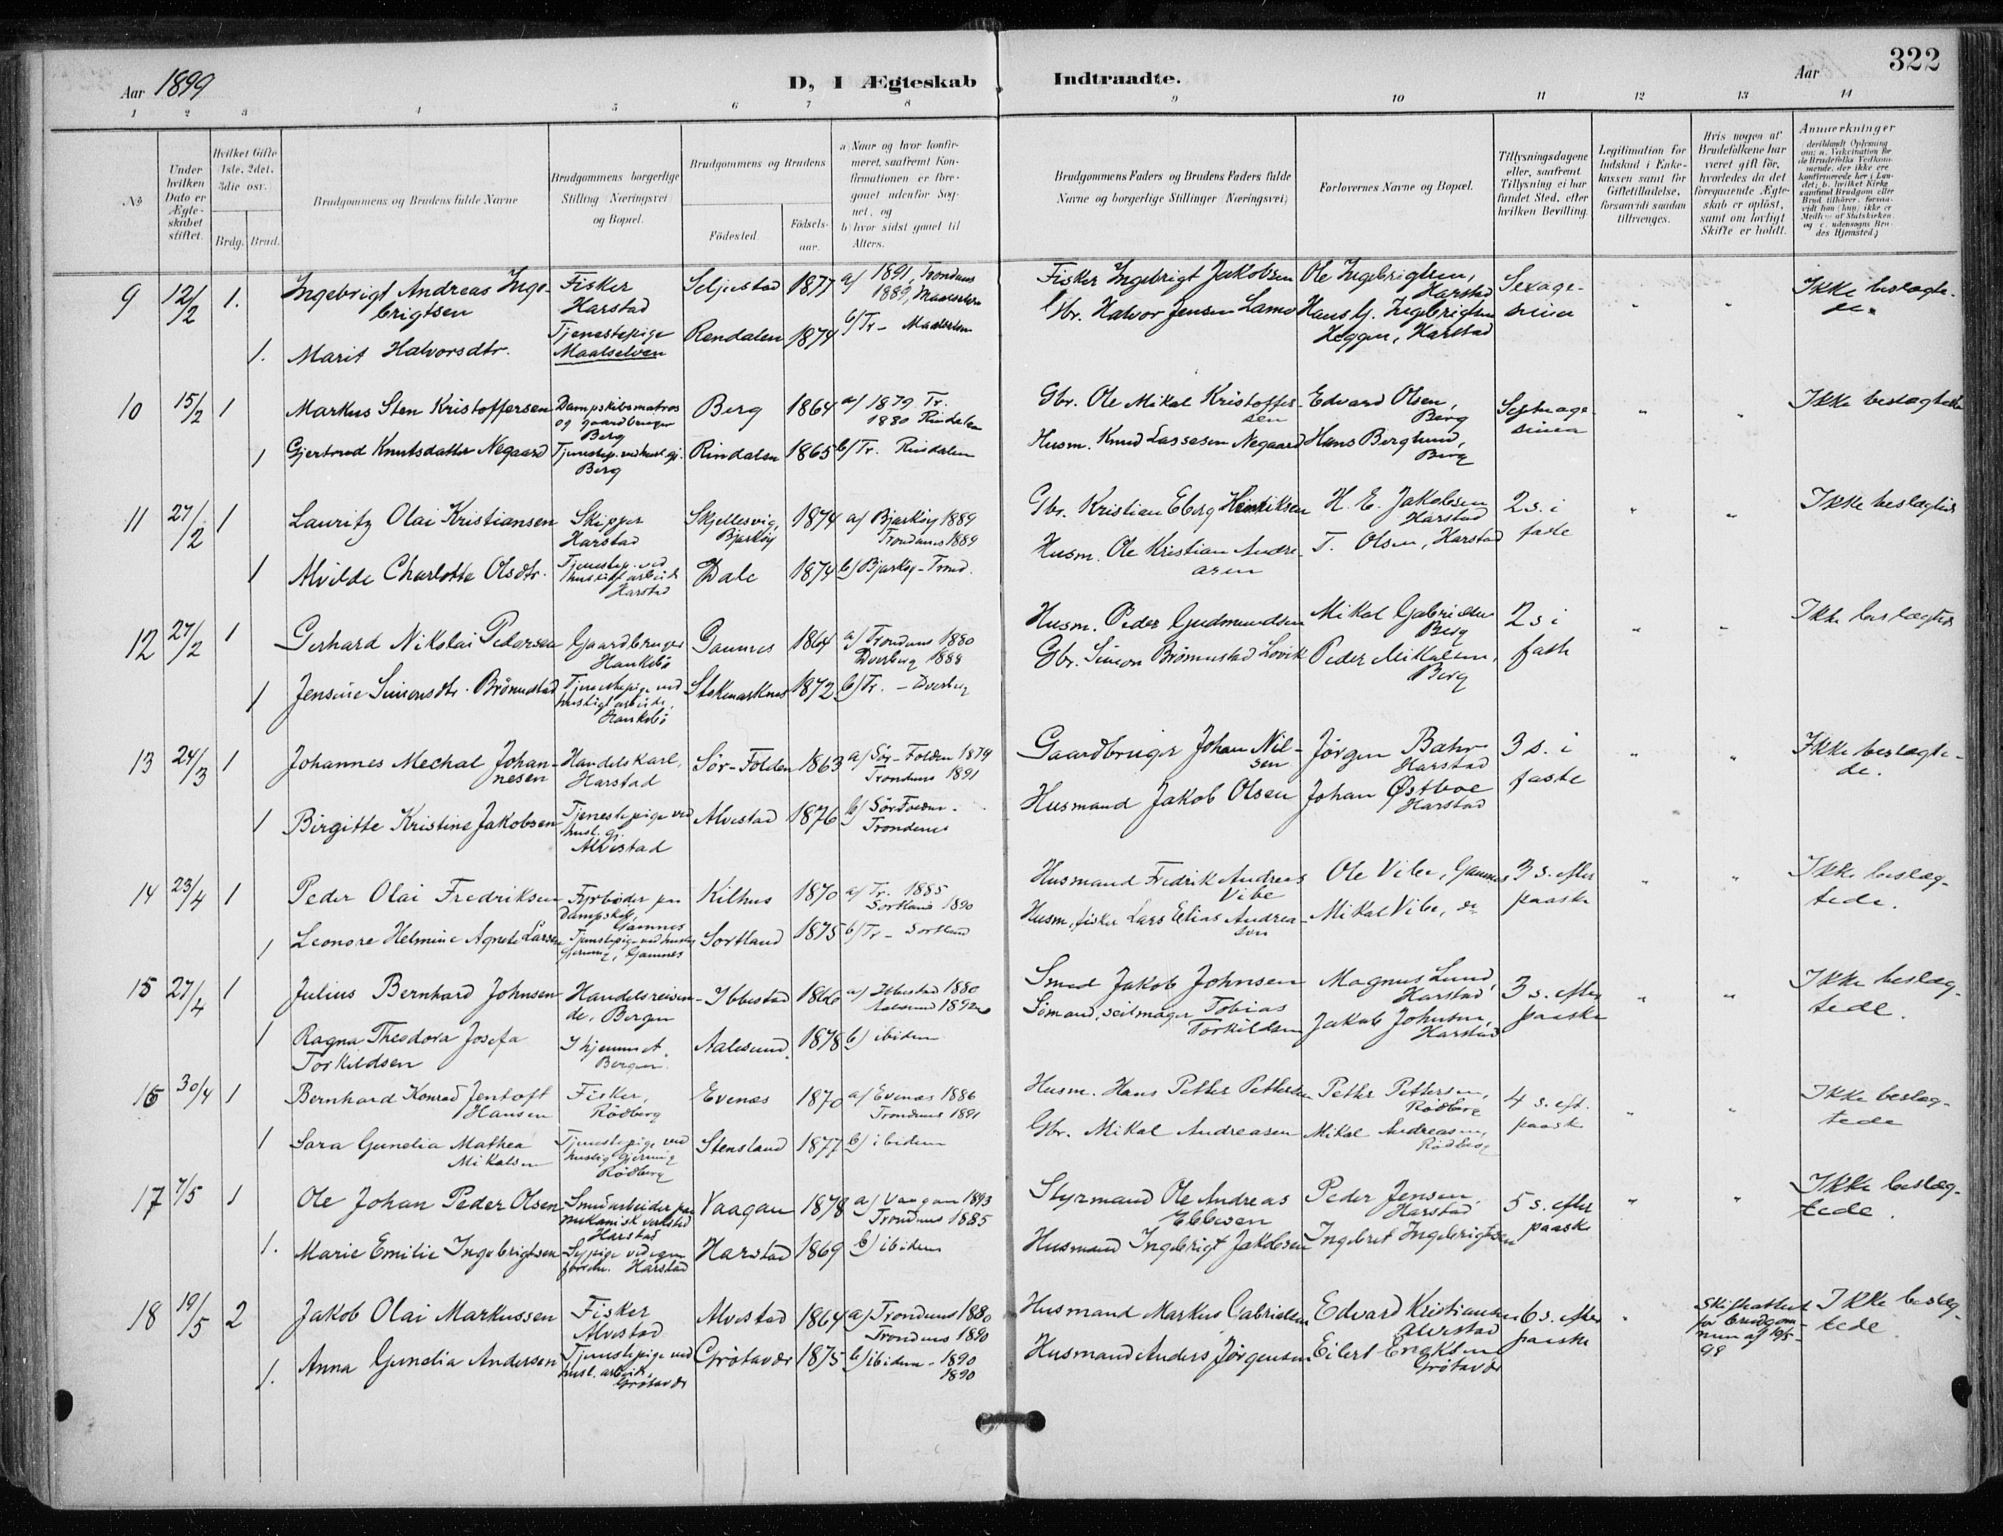 322
Aar 1899
D, I Ægteskab
Indtraadte.
Aar
1 2 3 4 5 6 7 8 9 10 11 12 13 14
№
Under hvilken Dato er Ægteskabet stiftet.
Hvilket Gifte 1ste, 2det, 3die osv.
Brdg. Brud.
Brudgommens og Brudens fulde Navne
Brudgommens borgerlige Stilling Næringsvei) og Bopæl.
Brudgommens og Brudens
Födested.
Födselsaar.
a) Naar og hvor konfirmeret, saafremt Konfirmationen er foregaaet udenfor Sognet, og
b) hvor sidst gaaet til Alters.
Brudgommens Faders og Brudens Faders fulde Navne og borgerlige Stillinger Næringsvei)
Forlovernes Navne og Bopæl.
Tillysningsdagene eller, saafremt Tillysning ei har fundet Sted, efter hvilken Bevilling.
Legitimation for Indskud i Enkekassen samt for Giftetilladelse, forsaavidt saadan tiltrænges.
Hvis nogen af Brudefolkene har været gift för, hvorledes da det foregaaende Ægteskab er oplöst, samt om lovligt Skifte er holdt.
Anmerkninger
9 12/2 1. Ingebrigt Andreas Ingebrigtsen Fisker Harstad Seljestad 1877 a/ 1891, Trondenes 1889, Maalselven Fisker Ingebrigt Jakobsen Ole Ingebrigtsen, Harstad Sexagesima " " Ikke beslægtede.
1. Marit Halvorsdtr. Tjenestepige Maalselven Rendalen 1874 b/ Tr. - Maalselven Gbr. Halvor Jensen Hans G. Ingebrigtsen Heggen, Harstad
10 15/2 1 Markus Sten Kristoffersen Dampskibsmatros og gaardbruger Berg Berg 1864 a/ 1879 Tr. 1880 Rindalen Gbr. Ole Mikal Kristoffersen Edvard Olsen, Berg Septuagesima " " Ikke beslægtede
1 Gjertrud Knutsdatter Negaard Tjenestep. ved husl. gj. Berg Rindalen 1865 b/ Tr. Rindalen Husm. Knud Lassesen Negaard Hans Berglund, Berg
11 27/2 1 Lauritz Olai Kristiansen Skipper Harstad Skjellesvig, Bjarköy 1874 a/ Bjarköy 1889 Trondenes 1889 Gbr. Kristian Eberg Henriksen H. E. Jakobsen Harstad 2 s. i faste " " Ikke beslægtede
1 Alvilde Charlotte Olsdtr. Tjenestep. ved husligt arbeide Harstad Dale 1874 b/ Bjarköy - Trond. Husm. Ole Kristian Andreasen T. Olsen, Harstad
12 27/2 1 Gerhard Nikolai Pedersen Gaardbruger Haukebö Gamnes 1864 a/ Trondenes 1880 Dverberg 1888 Husm. Peder Gudmundsen Mikal Gabrielsen Berg 2 s i faste " " Ikke beslægtede
1 Jensine Simonsdtr. Brömnestad Tjenestepige ved husligt arbeide, Haukebö Stokmarknes 1872 b/ Tr. - Dverberg Gbr. Simon Brömnestad Lovik Peder Mikalsen, Berg
13 24/3 1 Johannes Mechal Johannesen Handelskarl, Harstad Sör-Folden 1863 a/ Sör-Folden 1879 Trondenes 1891 Gaardbruger Johan Nilsen Jørgen Bahr Harstad 3 s. i faste " " Ikke beslægtede.
1 Birgitte Kristine Jakobsen Tjenestepige ved husl. gj. Alvestad Alvestad 1876 b/ Sør Folden. Trondenes Husmand Jakob Olsen Johan Østboe Harstad
14 23/4 1 Peder Olai Fredriksen Fyrbøder paa Dampskib, Gamnes Kilhus 1870 a/ Tr. 1885 Sortland 1890 Husmand Fredrik Andreas Vibe Ole Vibe, Gamnes 3 s. efter paaske " " Ikke beslægtede.
1 Leonore Helmine Agnete Larsen Tjenestepige ved huslig gjerning, Gamnes Sortland 1875 b/ Tr - Sortland Husm, fisker Lars Elias Andreasen Mikal Vibe, do
15 27/4 1 Julius Bernhard Johnsen Handelsreisende, Bergen Ibbestad 1866 a/ Ibbestad 1880 Aalesund 1892 Smed Jakob Johnsen Magnus Lund, Harstad 3 s. efter paaske " " Ikke beslægtede.
1 Ragna Theodora Josefa Torkildsen I hjemmet, Bergen. Aalesund. 1878 b/ ibidem Sömand, seilmager Tobias Torkildsen Jakob Johnsen, Harstad
16 30/4 1 Bernhard Konrad Jentoft Hansen Fisker, Rödberg Evenæs 1870 a/ Evenæs 1886 Trondenes 1891 Husm. Hans Petter Pettersen Petter Pettersen, Rödberg 4 s. eft. paaske " " Ikke beslægtede
1 Sara Gunelia Mathea Mikalsen Tjenestepige ved huslig gjerning Rödberg Stensland 1877 b/ ibidem Gbr. Mikal Andreasen Mikal Andreasen, Rödberg
17 7/5 1 Ole Johan Peder Olsen Smedarbeider paa mekanisk verksted Harstad Vaagan 1878 a/ Vaagan 1893 Trondenes 1885 Styrmand Ole Andreas Ebbesen Peder Jensen, Harstad 5 s. efter paaske " " Ikke beslægtede.
1. Marie Emilie Ingebrigtsen Sypige ved egen forretn. Harstad Harstad 1869 b/ ibidem Husmand Ingebrigt Jakobsen Ingebret Ingebrigtsen
18 19/5 2 Jakob Olai Markussen Fisker Alvestad Alvestad 1864 a/ Trondenes 1880 Trondenes 1890 Husmand Markus Gabrielsen Edvard Kristiansen Alvestad 6 s. efter paaske " Skifteattest for brudgommen af 19/5-99 Ikke beslægtede.
1. Anna Gunelia Andersen Tjenestepige ved husl. arbeide, Grötavær Grötavær 1875 b/ ibidem - 1890 1890 Husmand Anders Jørgensen Eilert Eriksen Grötavær